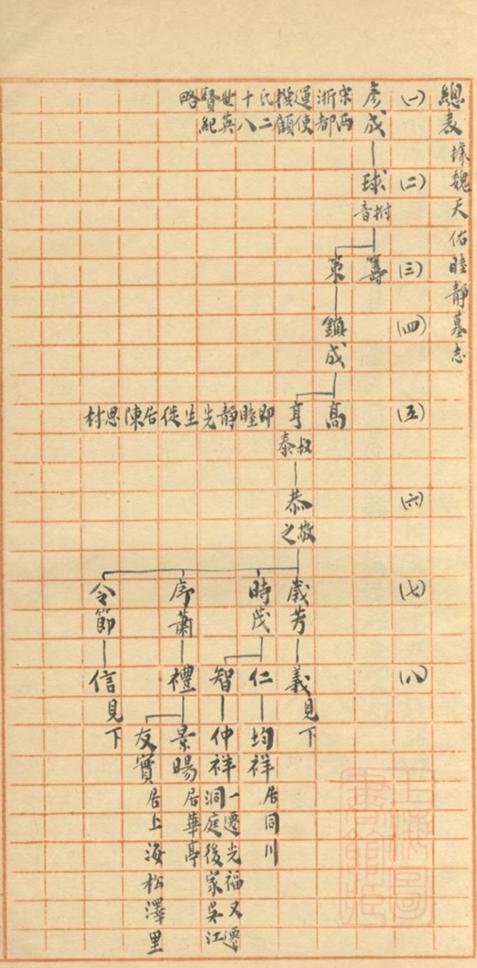 總表 據魏天佑睦靜墓志
(一)
彥成
宋兩浙都運使
撰顧氏二十八世英賢紀略
(二)
球
音拊
(三)
籌
策
(四)
鎮成
(五)
高
亨
叔泰
即睦靜先生徙居陳思村
(六)
恭
敬之
(七)
歲芳
時茂
序蕭
令節
(八)
義 見下
仁
智
禮
信 見下
均祥 居同川
仲祥 一遷光福又遷洞庭後家吳江
景暘 居華亭
友實 居上海松澤里